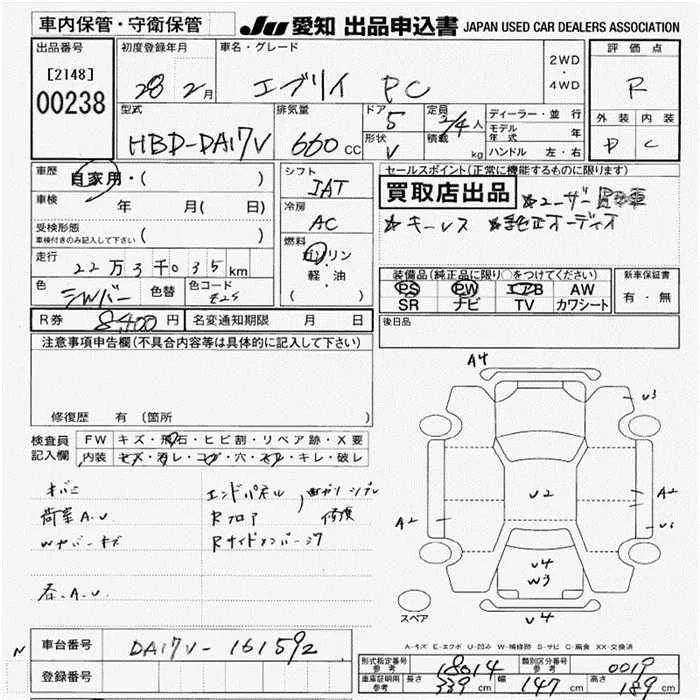 車内保管・守衛保管
JU 愛知 出品申込書 JAPAN USED CAR DEALERS ASSOCIATION
出品番号 初度登録年月 車名・グレード 評価点
[2148] 00238
28年 2月 エブリイ PC 2WD・4WD R
外装 内装
D C
型式 HBD-DA17V
排気量 660 CC
ドア 5
形状 V
定員 2/4人
積載 kg
ディーラー・並行
モデル年式 年
ハンドル 左・右
車歴 自家用・( )
車検 年 月( 日)
受検形態 ( )
車検付きのみ記入して下さい
走行 22万3千035km
色 シルバー 色替 色コード Z2S
シフト IAT
冷房 AC
燃料 ガソリン・軽・油
( )
セールスポイント(正常に機能するものに限ります)
買取店出品 ☆ユーザー買取車
☆キーレス ☆純正オーディオ
装備品(純正品に限り○をつけてください) 新車保証書
PS PW エアB AW 有・無
SR ナビ TV カワシート
R券 8,400円 名変通知期限 月 日
後日品
注意事項申告欄(不具合内容等は具体的に記入して下さい)
修復歴 有(箇所
検査員記入欄 FW キズ・飛石・ヒビ割・リペア跡・X要
内装 キズ・汚レ・コゲ・穴・スレ・キレ・破レ
荷室A.U
エンドパネル
曲がり
Rフロア 修復
A.U
A4
U3
U2
A2
A2
U4
W3
U4
スペア
A-キズ E-エクボ U-凹み W-補修跡 S-サビ C-腐食 XX-交換済
車台番号 DA17V-161592
登録番号
型式指定番号 参考 18014 類別区分番号 参考 0019
車庫証明用 参考 長さ 339cm 幅 147cm 高さ 189cm